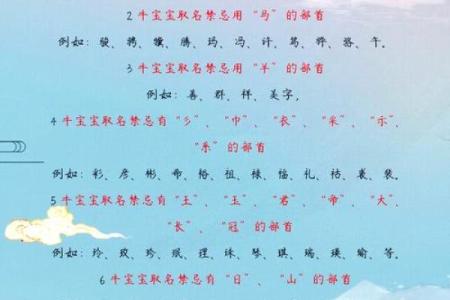 2 牛宝宝取名禁忌用“马”的部首
例如：骏、骋、骥、腾、玛、冯、许、笃、骅、骆、午。
3 牛宝宝取名禁忌用“羊”的部首
例如：善、群、祥、美字，
4 牛宝宝取名禁忌有“彡”、“巾”、“衣”、“采”、“示”、
“系”的部首
例如：彩、彦、彬、希、裕、祖、禄、福、礼、祜、裹、装。
5 牛宝宝取名禁忌有“王”、“玉”、“君”、“帝”、“大”、
“长”、“冠”的部首
例如：玲、玫、珍、珉、理、珠、琴、琪、瑞、瑛、瑜、等。
6 牛宝宝取名禁忌有“日”、“山”的部首